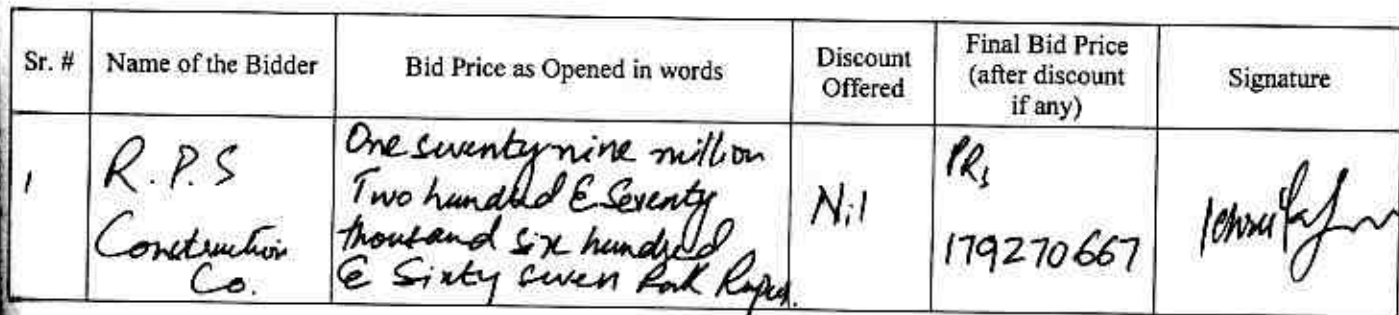 Sr. #
Name of the Bidder
Bid Price as Opened in words
Discount
Offered
Final Bid Price
(after discount
if any)
Signature
1
R.P.S
Construction
Co.
One seventy nine million
Two hundred & Seventy
thousand six hundred
& Sixty seven Pak Rupees.
Nil
PRs
179270667